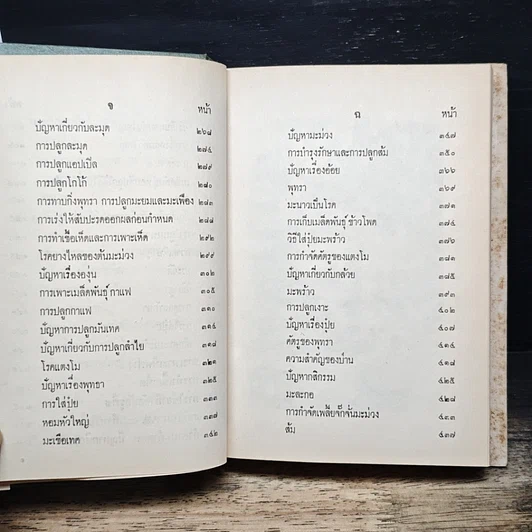 จ
หน้า
ปัญหาเกี่ยวกับละมุด ๒๖๘
การปลูกละมุด ๒๗๔
การปลูกแอปเปิล ๒๗๙
การปลูกโกโก้ ๒๘๐
การทาบกิ่งพุทรา การปลูกมะยมและมะเฟือง ๒๘๓
การเร่งให้สับปะรดออกผลก่อนกำหนด ๒๘๘
การทำเชื้อเห็ดและการเพาะเห็ด ๒๙๒
โรคยางไหลของต้นมะม่วง ๒๙๙
ปัญหาเรื่ององุ่น ๓๐๒
การเพาะเมล็ดพันธุ์ กาแฟ ๓๐๕
การปลูกกาแฟ ๓๑๐
ปัญหาการปลูกมันเทศ ๓๑๔
ปัญหาเกี่ยวกับการปลูกลำไย ๓๑๘
โรคแตงโม ๓๒๑
ปัญหาเรื่องพุทธา ๓๒๕
การใส่ปุ๋ย ๓๒๘
หอมหัวใหญ่ ๓๓๗
มะเขือเทศ ๓๔๒
ฉ
หน้า
ปัญหามะม่วง ๓๔๗
การบำรุงรักษาและการปลูกส้ม ๓๕๐
ปัญหาเรื่องอ้อย ๓๖๖
พุทรา ๓๖๙
มะนาวเป็นโรค ๓๗๑
การเก็บเมล็ดพันธุ์ ข้าวโพด ๓๗๔
วิธีใส่ปุ๋ยมะพร้าว ๓๗๖
การกำจัดศัตรูของแตงโม ๓๘๑
ปัญหาเกี่ยวกับกล้วย ๓๘๕
มะพร้าว ๓๙๓
การปลูกเงาะ ๔๐๒
ปัญหาเรื่องปุ๋ย ๔๐๗
ศัตรูของพุทรา ๔๑๔
ความสำคัญของบ้าน ๔๑๘
ปัญหากสิกรรม ๔๒๕
มะละกอ ๔๒๘
การกำจัดเพลี้ยจั๊กจั่นมะม่วง ๔๓๓
ส้ม ๔๓๗